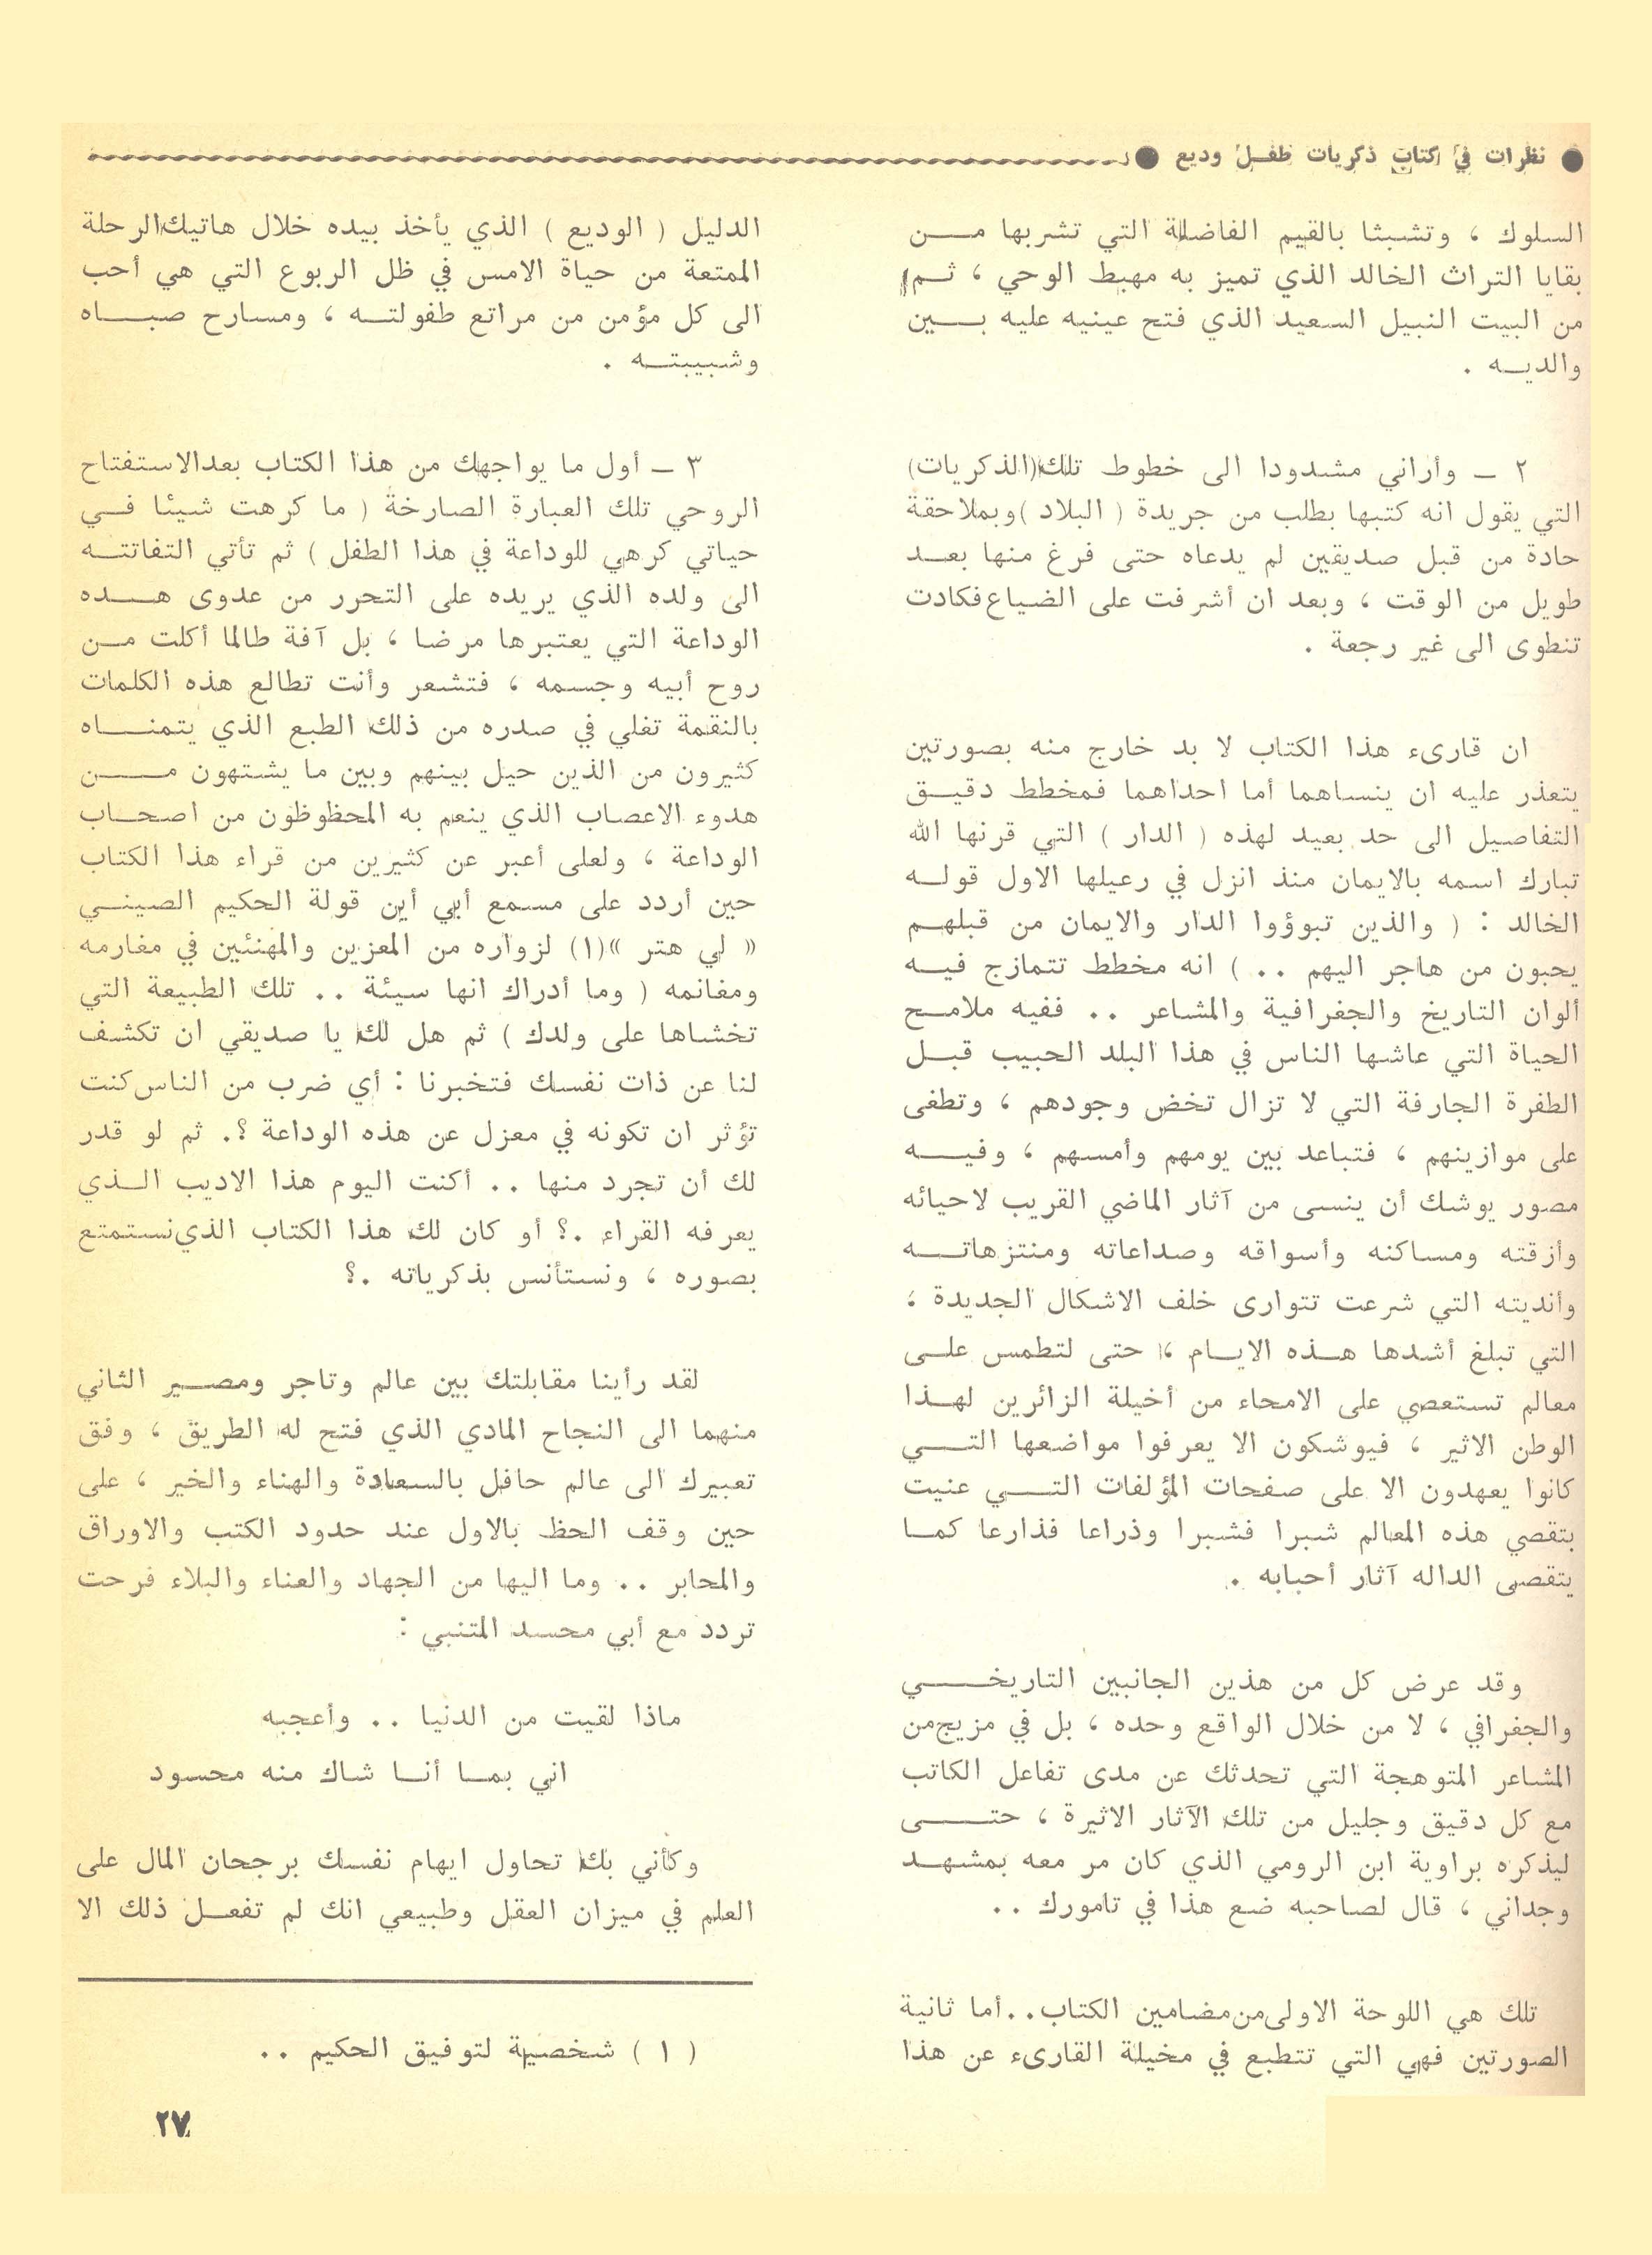 ● نظرات في كتاب ذكريات طفل وديع ●
السلوك ، وتشبثا بالقيم الفاضلة التي تشربها مـــن
بقايا التراث الخالد الذي تميز به مهبط الوحي ، ثـم
من البيت النبيل السعيد الذي فتح عينيه عليه بـــين
والديـه .
٢ ــ وأراني مشدودا الى خطوط تلك (الذكريات)
التي يقول انه كتبها بطلب من جريدة ( البلاد ) وبملاحقة
حادة من قبل صديقين لم يدعاه حتى فرغ منها بعـد
طويل من الوقت ، وبعد ان أشرفت على الضياع فكادت
تنطوى الى غير رجعة .
ان قارىء هذا الكتاب لا بد خارج منه بصورتين
يتعذر عليه ان ينساهما أما احداهما فمخطط دقيـق
التفاصيل الى حد بعيد لهذه ( الدار ) التي قرنها الله
تبارك اسمه بالايمان منذ انزل في رعيلها الاول قولـه
الخالد : ( والذين تبوؤوا الدار والايمان من قبلهـم
يحبون من هاجر اليهم . . ) انه مخطط تتمازج فيـه
ألوان التاريخ والجغرافية والمشاعر . . ففيه ملامـح
الحياة التي عاشها الناس في هذا البلد الحبيب قبـل
الطفرة الجارفة التي لا تزال تخض وجودهم ، وتطغى
على موازينهم ، فتباعد بين يومهم وأمسهم ، وفيـــه
مصور يوشك أن ينسى من آثار الماضي القريب لاحيائه
وأزقته ومساكنه وأسواقه وصداعاته ومنتزهاتـــه
وأنديته التي شرعت تتوارى خلف الاشكال الجديدة ،
التي تبلغ أشدها هـذه الايـام ، حتى لتطمس علـى
معالم تستعصي على الامحاء من أخيلة الزائرين لهـذا
الوطن الاثير ، فيوشكون الا يعرفوا مواضعها التـــي
كانوا يعهدون الا على صفحات المؤلفات التـــي عنيت
بتقصي هذه المعالم شبرا فشبرا وذراعا فذارعا كمـا
يتقصى الداله آثار أحبابه .
وقد عرض كل من هذين الجانبين التاريخـــي
والجغرافي ، لا من خلال الواقع وحده ، بل في مزيج من
المشاعر المتوهجة التي تحدثك عن مدى تفاعل الكاتب
مع كل دقيق وجليل من تلك الآثار الاثيرة ، حتـــى
ليذكره براوية ابن الرومي الذي كان مر معه بمشهـد
وجداني ، قال لصاحبه ضع هذا في تامورك . .
تلك هي اللوحة الاولى من مضامين الكتاب . . أما ثانية
الصورتين فهي التي تنطبع في مخيلة القارىء عن هذا
الدليل ( الوديع ) الذي يأخذ بيده خلال هاتيك الرحلة
الممتعة من حياة الامس في ظل الربوع التي هي أحب
الى كل مؤمن من مراتع طفولتـه ، ومسارح صبـــاه
وشبيبتــه .
٣ ــ أول ما يواجهك من هذا الكتاب بعد الاستفتاح
الروحي تلك العبارة الصارخة ( ما كرهت شيئا فـي
حياتي كرهي للوداعة في هذا الطفل ) ثم تأتي التفاتتـه
الى ولده الذي يريده على التحرر من عدوى هـــده
الوداعة التي يعتبرها مرضا ، بل آفة طالما أكلت مـن
روح أبيه وجسمه ، فتشعر وأنت تطالع هذه الكلمات
بالنقمة تغلي في صدره من ذلك الطبع الذي يتمنـــاه
كثيرون من الذين حيل بينهم وبين ما يشتهون مـــن
هدوء الاعصاب الذي ينعم به المحظوظون من اصحـاب
الوداعة ، ولعلى أعبر عن كثيرين من قراء هذا الكتاب
حين أردد على مسمع أبي أين قولة الحكيم الصينـي
« لي هتر »(١) لزواره من المعزين والمهنئين في مغارمه
ومغانمه ( وما أدراك انها سيئة . . تلك الطبيعة التي
تخشاها على ولدك ) ثم هل لك يا صديقي ان تكشف
لنا عن ذات نفسك فتخبرنا : أي ضرب من الناس كنت
تؤثر ان تكونه في معزل عن هذه الوداعة ؟. ثم لو قدر
لك أن تجرد منها . . أكنت اليوم هذا الاديب الـذي
يعرفه القراء .؟ أو كان لك هذا الكتاب الذي نستمتع
بصوره ، ونستأنس بذكرياته .؟
لقد رأينا مقابلتك بين عالم وتاجر ومصـير الثاني
منهما الى النجاح المادي الذي فتح له الطريق ، وفق
تعبيرك الى عالم حافل بالسعادة والهناء والخير ، على
حين وقف الحظ بالاول عند حدود الكتب والاوراق
والمحابر . . وما اليها من الجهاد والعناء والبلاء فرحت
تردد مع أبي محسد المتنبي :
ماذا لقيت من الدنيا . . وأعجبه
اني بمـا أنـا شاك منه محسود
وكأني بك تحاول ايهام نفسك برجحان المال على
العلم في ميزان العقل وطبيعي انك لم تفعـل ذلك الا
( ١ ) شخصية لتوفيق الحكيم . .
٢٧